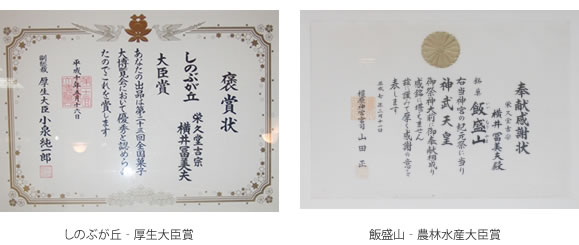 褒賞状
栄久堂吉宗
横井冨美夫
しのぶが丘
大臣賞
あなたの出品は第二十三回全国菓子
大博覧会において優秀と認められ
たのでこれを賞します
平成十年五月十八日
副総裁 厚生大臣 小泉純一郎
しのぶが丘 - 厚生大臣賞
奉献感謝状
栄久堂吉宗
横井冨美夫殿
銘菓 飯盛山
右当神宮の紀元祭に当り
神武天皇
御祭神大前に御奉献相成り
感銘に堪えません
謹みて厚く感謝の意を
表します
平成七年二月十一日
橿原神宮宮司 山田 正
飯盛山 - 農林水産大臣賞